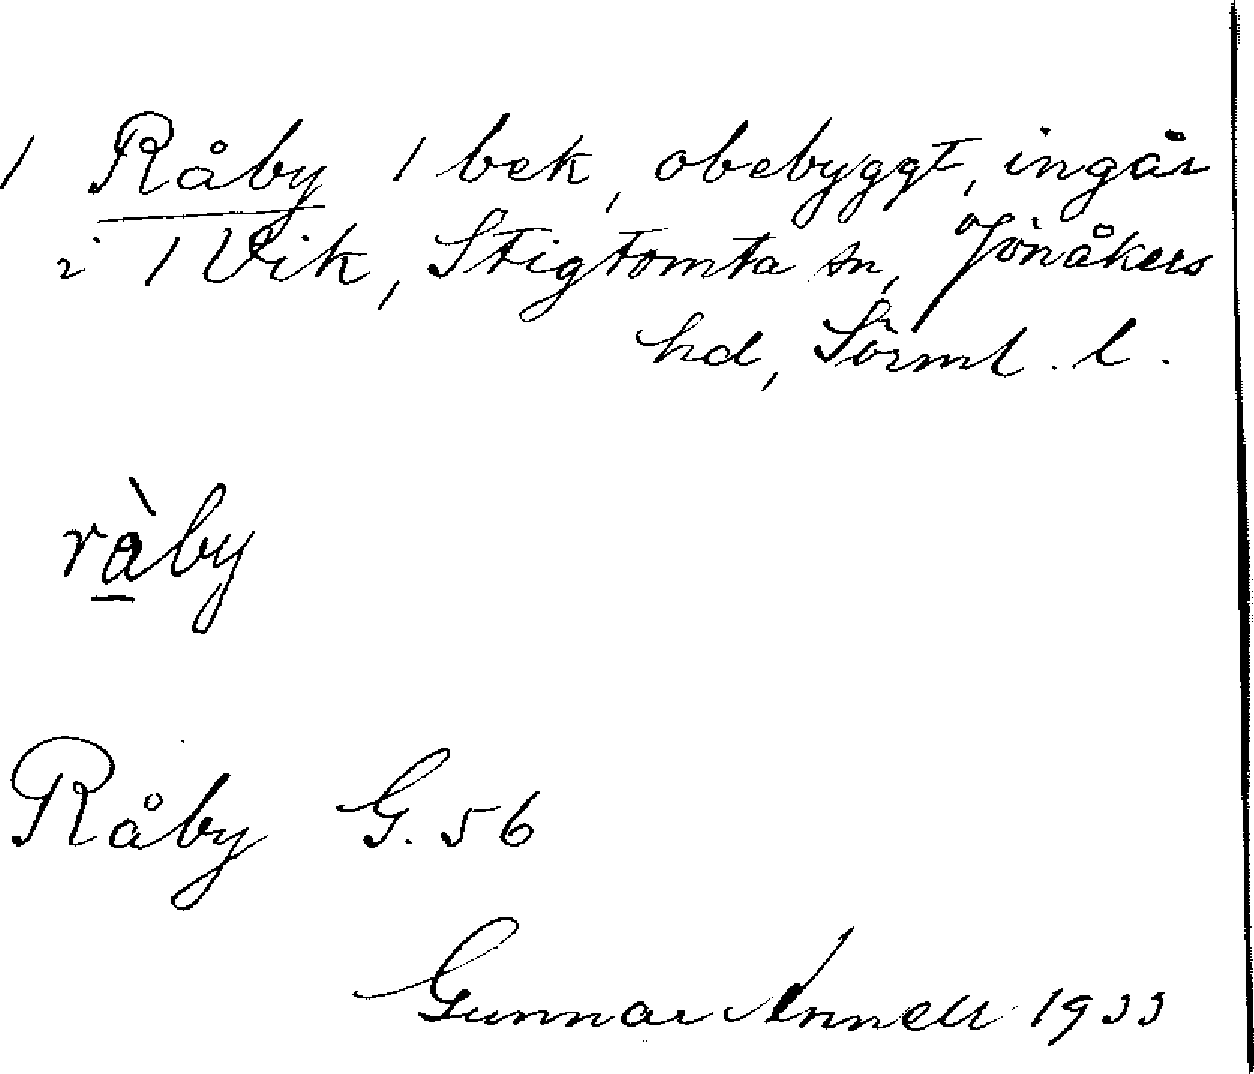 1 Råby 1 bek, obebyggt, ingår
i 1 Vik, Stigtomta sn, Jönåkers
hd, Sörml. l.
ràby
Råby G. 56
Gunnar Annell 1933